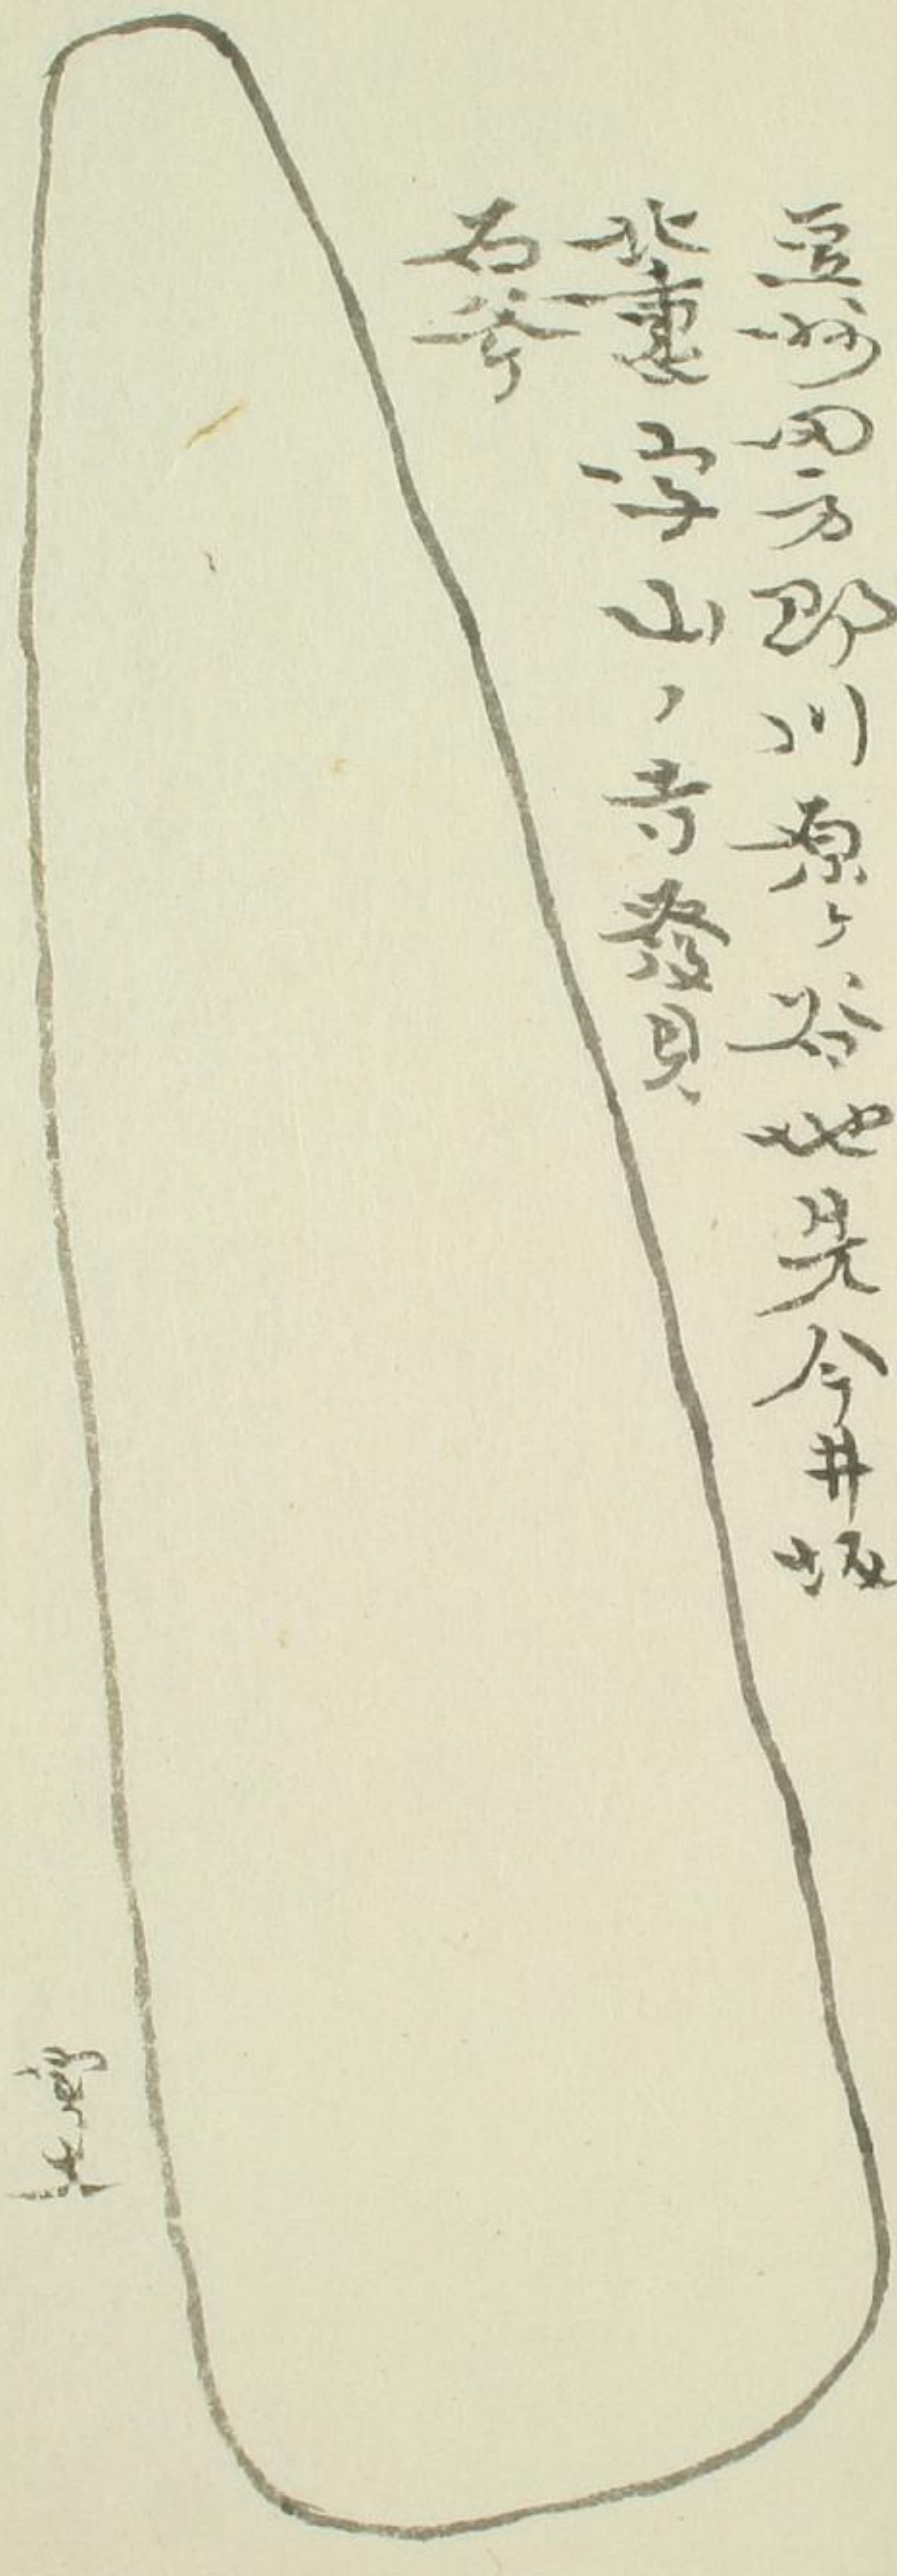 豆州田方郡川原ヶ谷地先今井坂
北裏字山ノ寺發見
石斧